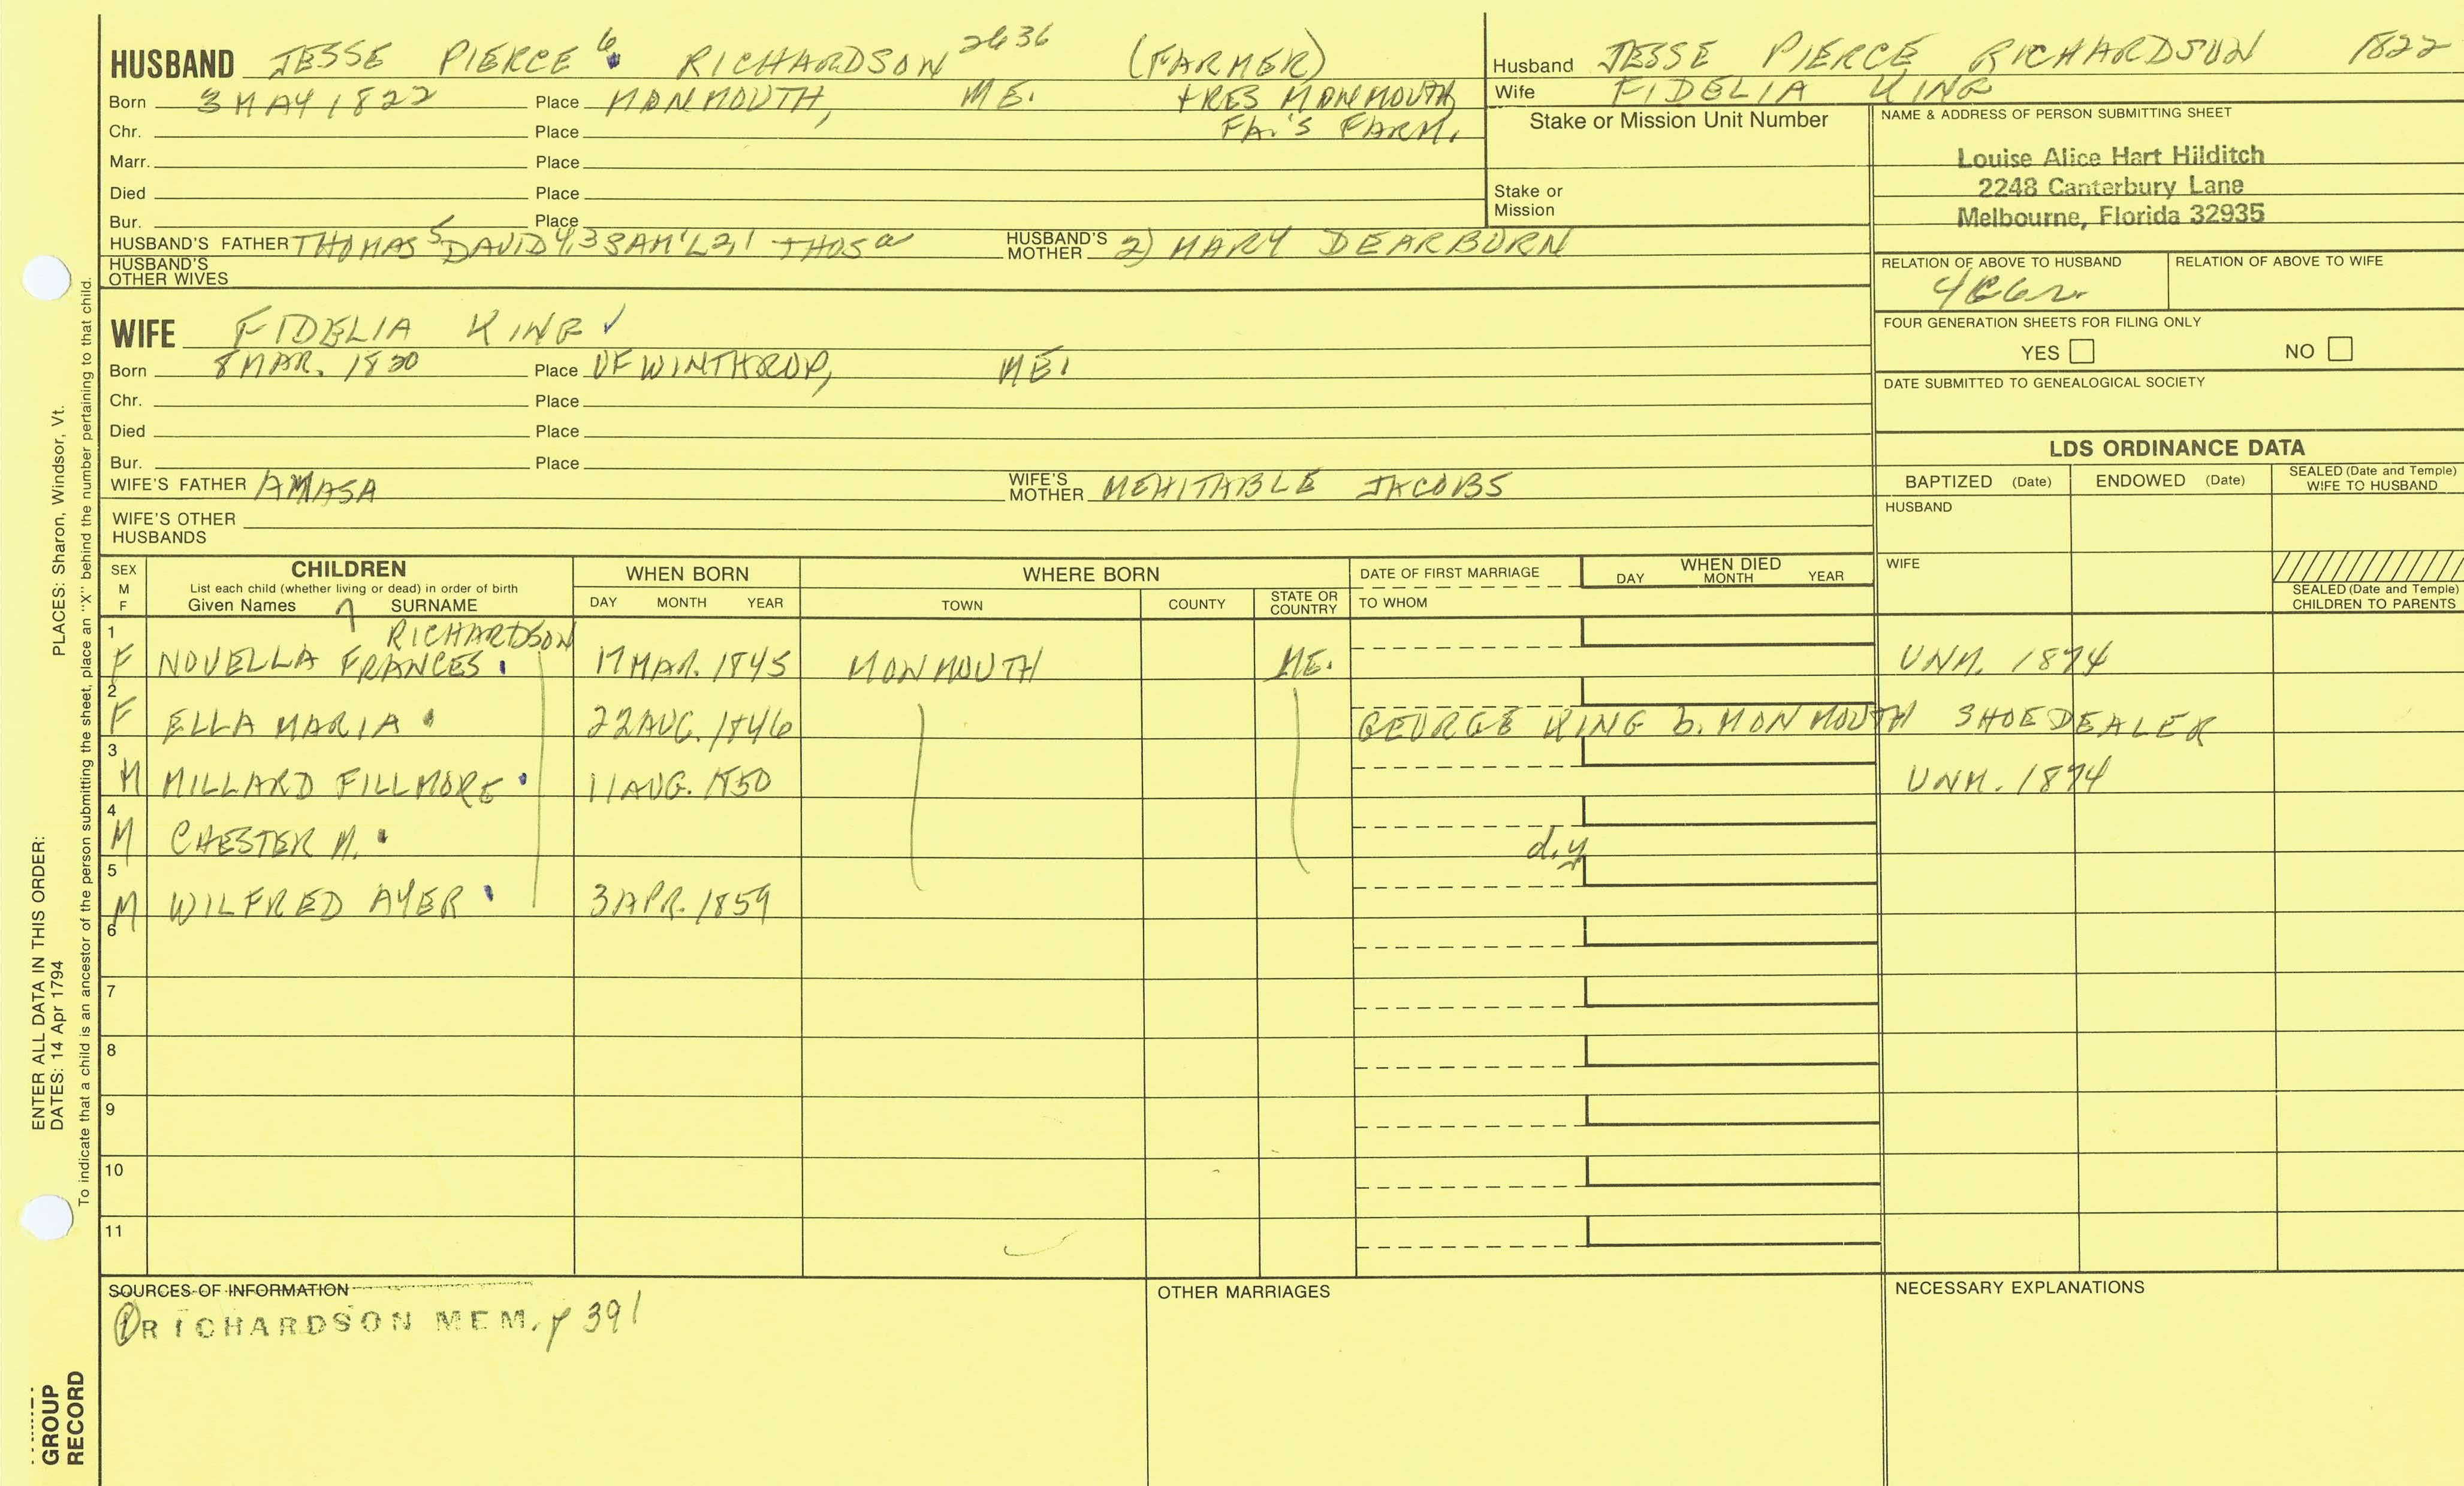 HUSBAND JESSE PIERCE 6 RICHARDSON 2636 (FARMER)
Born 3 MAY 1822 Place MONMOUTH, ME. +RES MONMOUTH
Chr. Place FA.'S FARM.
Marr. Place
Died Place
Bur. Place
HUSBAND'S FATHER THOMAS 5 DAVID 4,3 SAM'L 2,1 THOS a HUSBAND'S MOTHER 2) MARY DEARBORN
HUSBAND'S OTHER WIVES
WIFE FIDELIA KING ✓
Born 8 MAR. 1820 Place OF WINTHROP, ME.
Chr. Place
Died Place
Bur. Place
WIFE'S FATHER AMASA WIFE'S MOTHER MEHITABLE JACOBS
WIFE'S OTHER HUSBANDS
Husband JESSE PIERCE RICHARDSON 1822
Wife FIDELIA KING
Stake or Mission Unit Number
Stake or Mission
NAME & ADDRESS OF PERSON SUBMITTING SHEET
Louise Alice Hart Hilditch
2248 Canterbury Lane
Melbourne, Florida 32935
RELATION OF ABOVE TO HUSBAND RELATION OF ABOVE TO WIFE
FOUR GENERATION SHEETS FOR FILING ONLY
YES NO
DATE SUBMITTED TO GENEALOGICAL SOCIETY
LDS ORDINANCE DATA
BAPTIZED (Date) ENDOWED (Date) SEALED (Date and Temple) WIFE TO HUSBAND
HUSBAND
WIFE
SEALED (Date and Temple) CHILDREN TO PARENTS
SEX M F
CHILDREN
List each child (whether living or dead) in order of birth
Given Names 7 SURNAME
WHEN BORN
DAY MONTH YEAR
WHERE BORN
TOWN COUNTY STATE OR COUNTRY
DATE OF FIRST MARRIAGE
TO WHOM
WHEN DIED
DAY MONTH YEAR
RICHARDSON
1 F NOVELLA FRANCES 17 MAR. 1845 MONMOUTH ME. UNM. 1874
2 F ELLA MARIA 22 AUG. 1846 GEORGE KING b. MONMOUTH SHOEDEALER
3 M MILLARD FILLMORE 11 AUG. 1850 UNM. 1874
4 M CHESTER M. d.y
5 M WILFRED AYER 3 APR. 1859
6
7
8
9
10
11
SOURCES OF INFORMATION
1 RICHARDSON MEM. p 391
OTHER MARRIAGES
NECESSARY EXPLANATIONS
ENTER ALL DATA IN THIS ORDER:
DATES: 14 Apr 1794 PLACES: Sharon, Windsor, Vt.
To indicate that a child is an ancestor of the person submitting the sheet, place an "X" behind the number pertaining to that child.
GROUP
RECORD